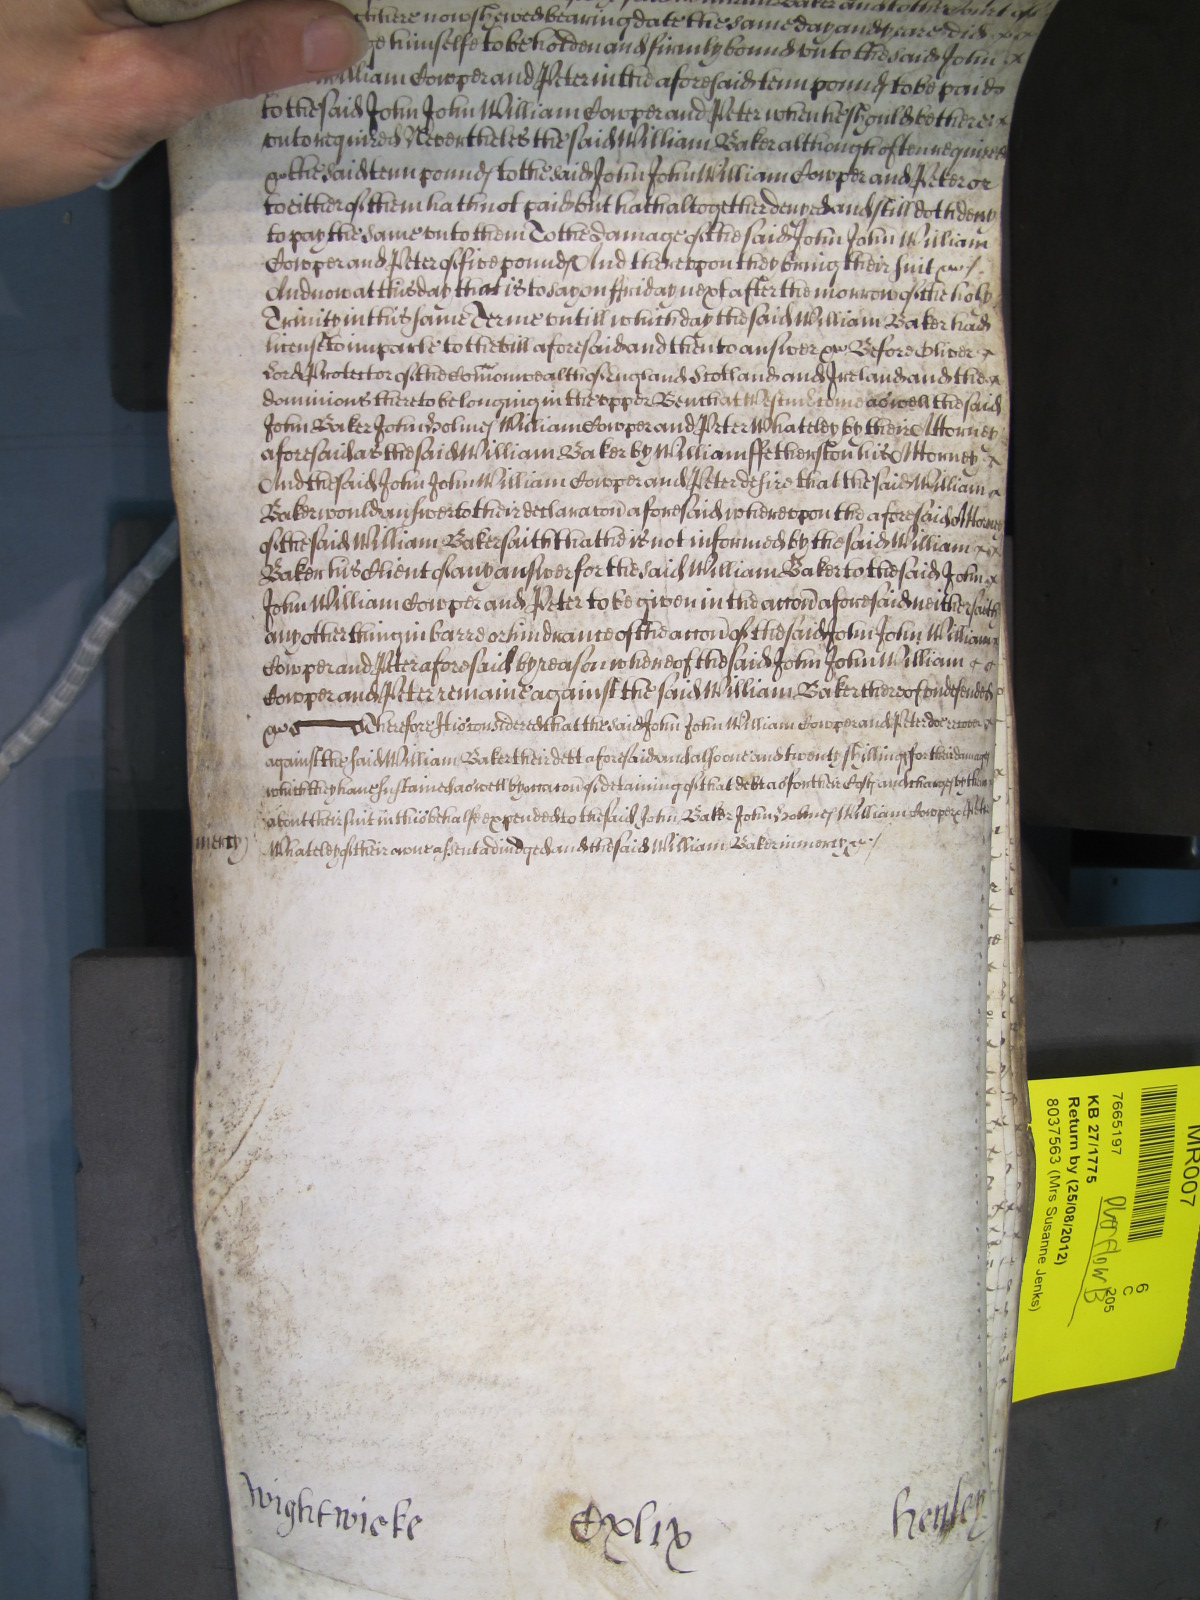 here now shewed bearing date the same day and yeare did
himselfe to be holden and firmly bound unto the said John
William Cowper and Peter in the aforesaid tenn pounds to be paid
to the said John John William Cowper and Peter when he should be there
unto required Nevertheles the said William Baker although often required
&c the said tenn pounds to the said John John William Cowper and Peter or
to either of them hath not paid but hath altogether denyed and still doth deny
to pay the same unto them To the damage of the said John John William
Cowper and Peter of five pounds And thereupon they bring their suit &c
And now at this day that is to say on ffriday next after the morrow of the holy
Trinity in this same Terme untill which day the said William Baker had
license to imparle to the bill aforesaid and then to answer &c Before Oliver
Lord Protector of the Comonwealth of England Scotland and Ireland and the
dominions thereto belonging in the upper Bench at Westm come aswell the said
John Baker John Holmes William Cowper and Peter Whateley by their Attorney
aforesaid as the said William Baker by William ffetherston his Attorney
And the said John John William Cowper and Peter desire that the said William
Baker would answer to their declaracon aforesaid whereupon the aforesaid Attorney
of the said William Baker saith that he is not informed by the said William
Baker his Client of any answer for the said William Baker to the said John
John William Cowper and Peter to be given in the accon aforesaid neither saith
any other thing in barre or hindrance of the accon of the said John John William
Cowper and Peter aforesaid by reason whereof the said John John William
Cowper and Peter remaine against the said William Baker thereof undefended
&c Therefore It is considered that the said John John William Cowper and Peter doe recover
against the said William Baker their debt aforesaid and also one and twenty shillings for their damages
which they have sustained aswell by occacon of detaining of that debt as for their Costs and charges by them
about their suit in this behalfe expended to the said John Baker John Holmes William Cowper & Peter
mercy Whateley of their owne assent adiudged and the said William Baker in mercy &c
wightwicke Cxlix henley
MR007
6
C
205
7665197
KB 27/1775
Overflow B
Return by (25/08/2012)
8037563 (Mrs Susanne Jenks)